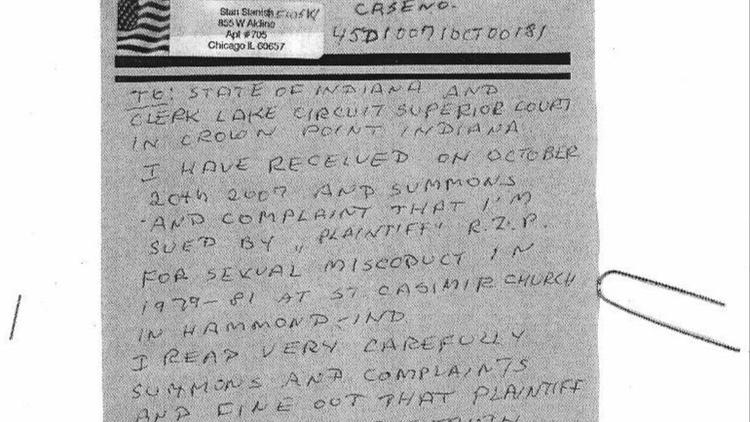 Stan
855 W Aldine
Apt #705
Chicago IL 60657
CASE NO.
45D10071OCT00181
TO: STATE OF INDIANA AND
CLERK LAKE CIRCUIT SUPERIOR COURT
IN CROWN POINT INDIANA.
I HAVE RECEIVED ON OCTOBER
20th 2007 AND SUMMONS
AND COMPLAINT THAT I'M
SUED BY „PLAINTIFF" R.Z.P.
FOR SEXUAL MISCODUCT IN
1979-81 AT ST CASIMIR CHURCH
IN HAMMOND-IND
I READ VERY CAREFULLY
SUMMONS AND COMPLAINTS
AND FINE OUT THAT PLAINTIFF